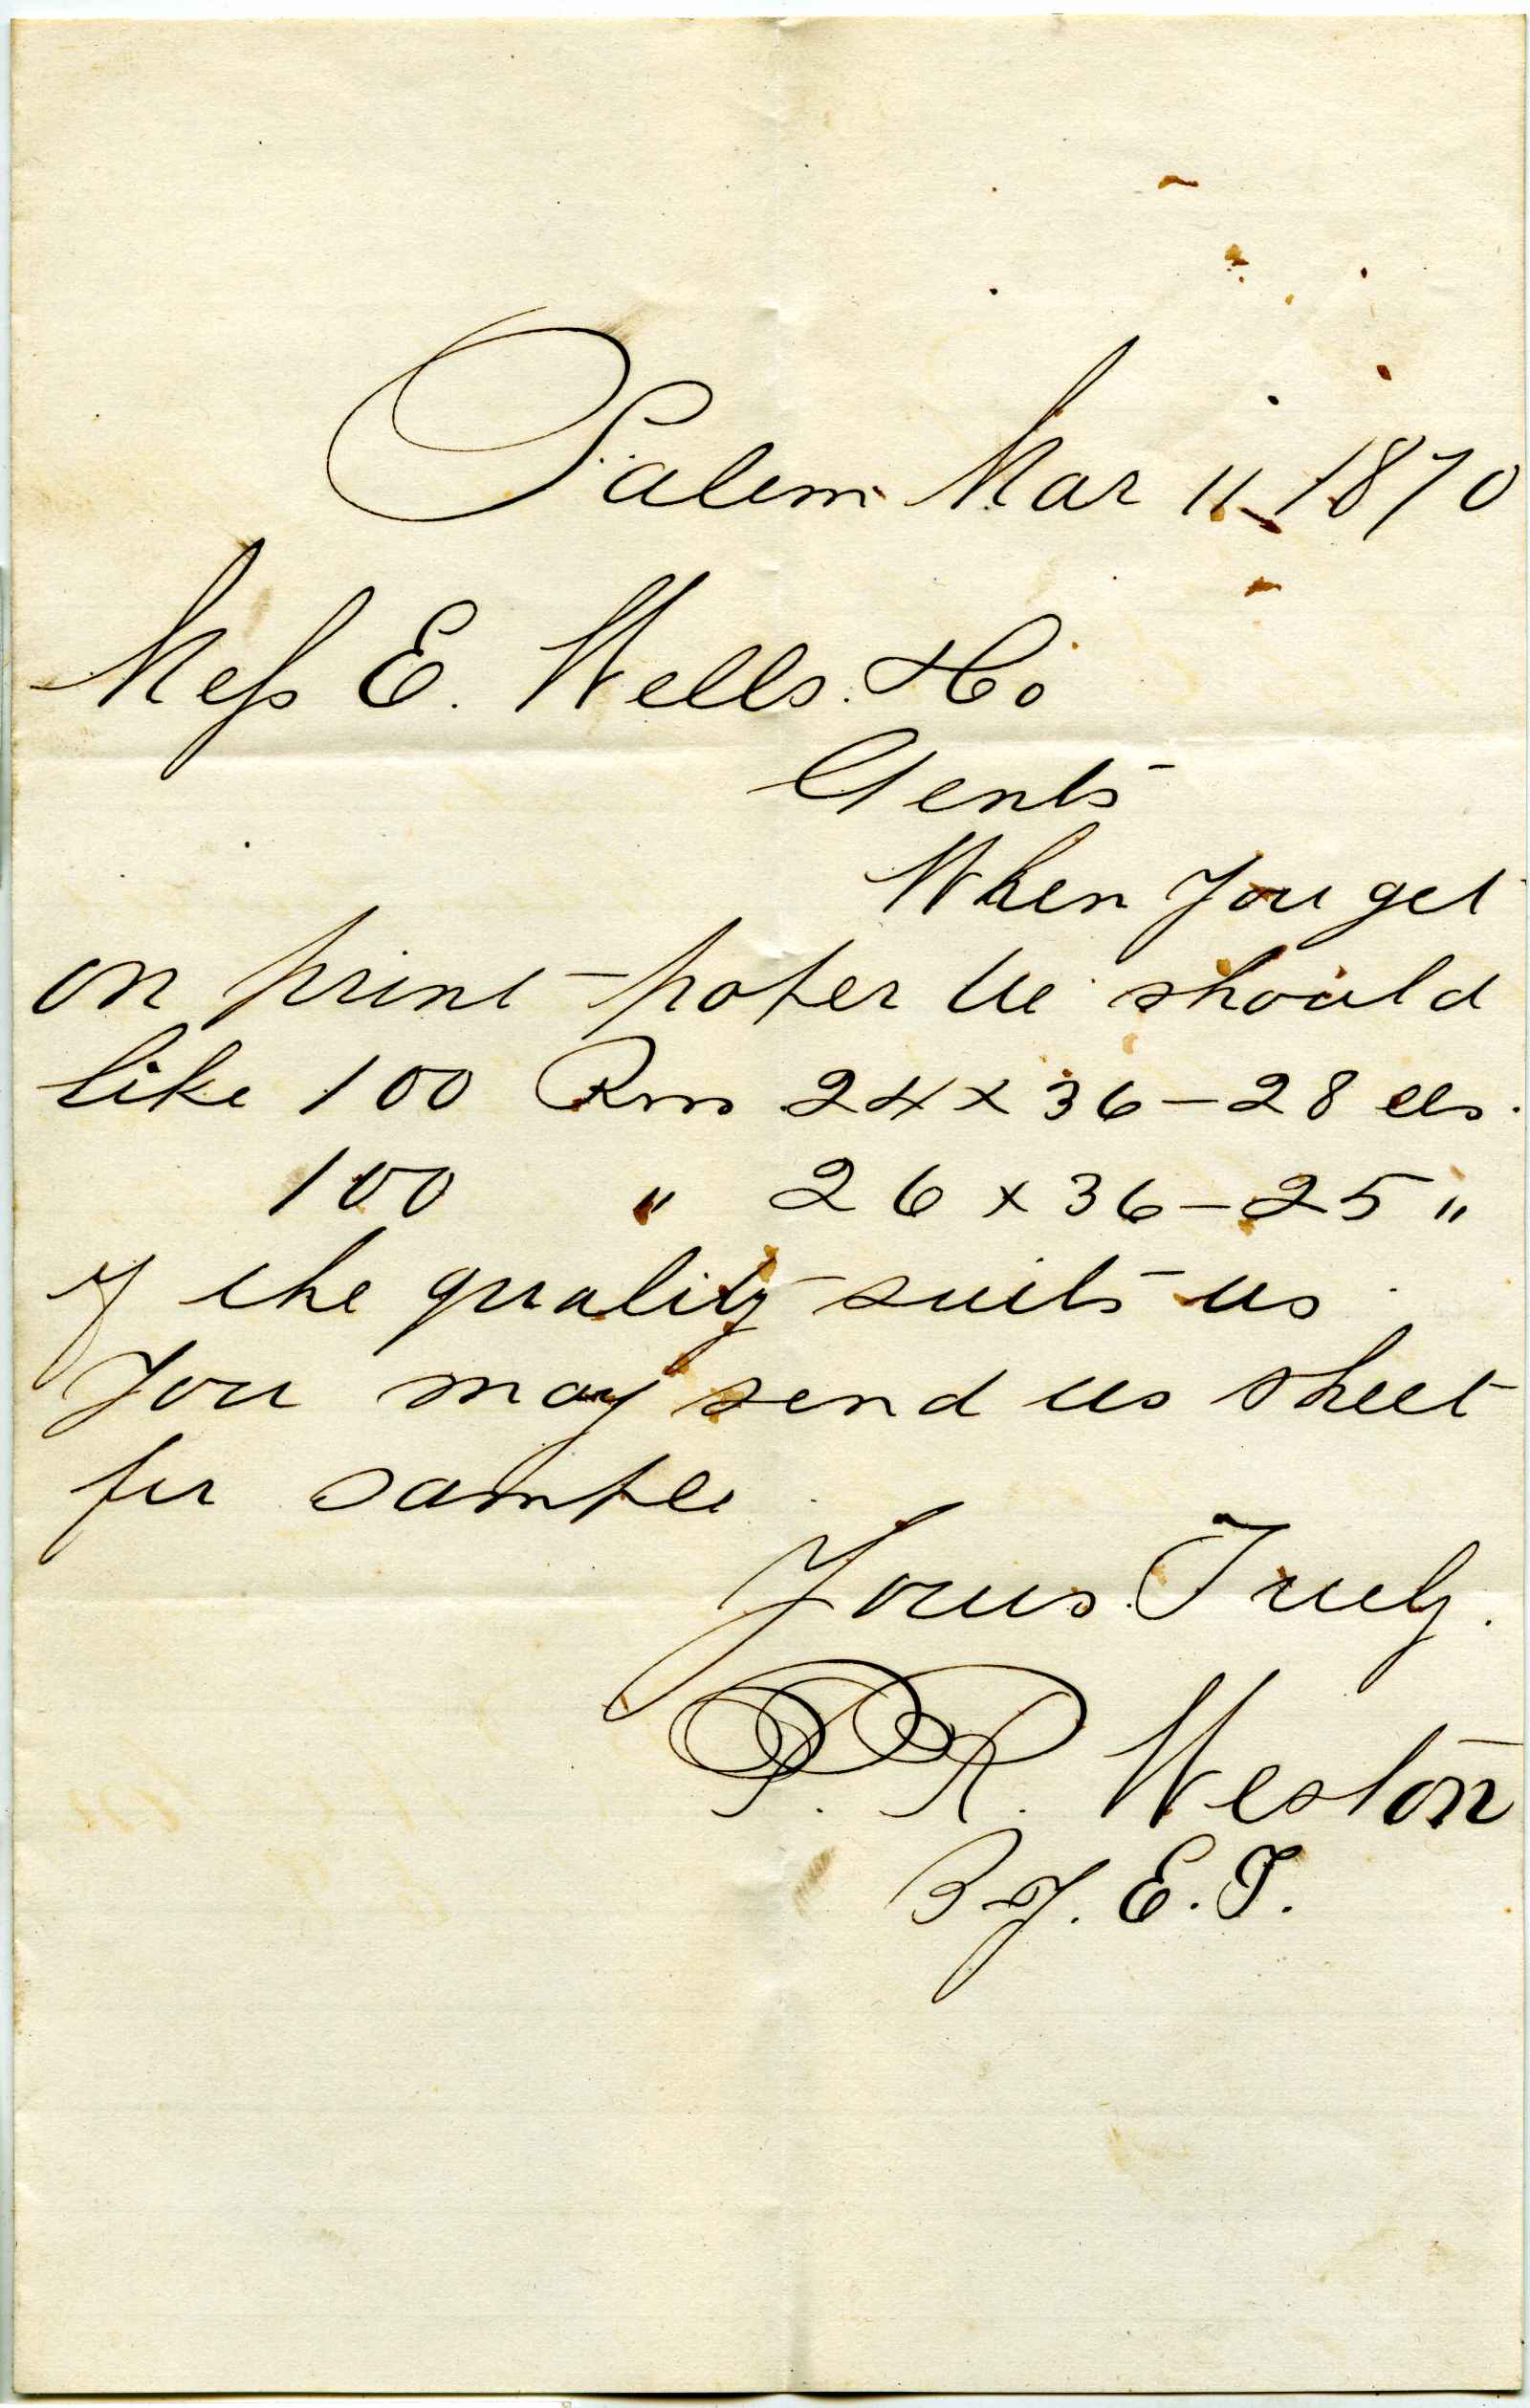 Salem Mar 11 1870
Mess E. Wells. & Co
Gents
When You get
on print paper We should
like 100 Rms 24 x 36 - 28 lbs.
100 " 26 x 36 - 25 "
If the quality suits us.
You may send us sheet
for sample
Yours Truly.
P. R. Weston
By. E. T.